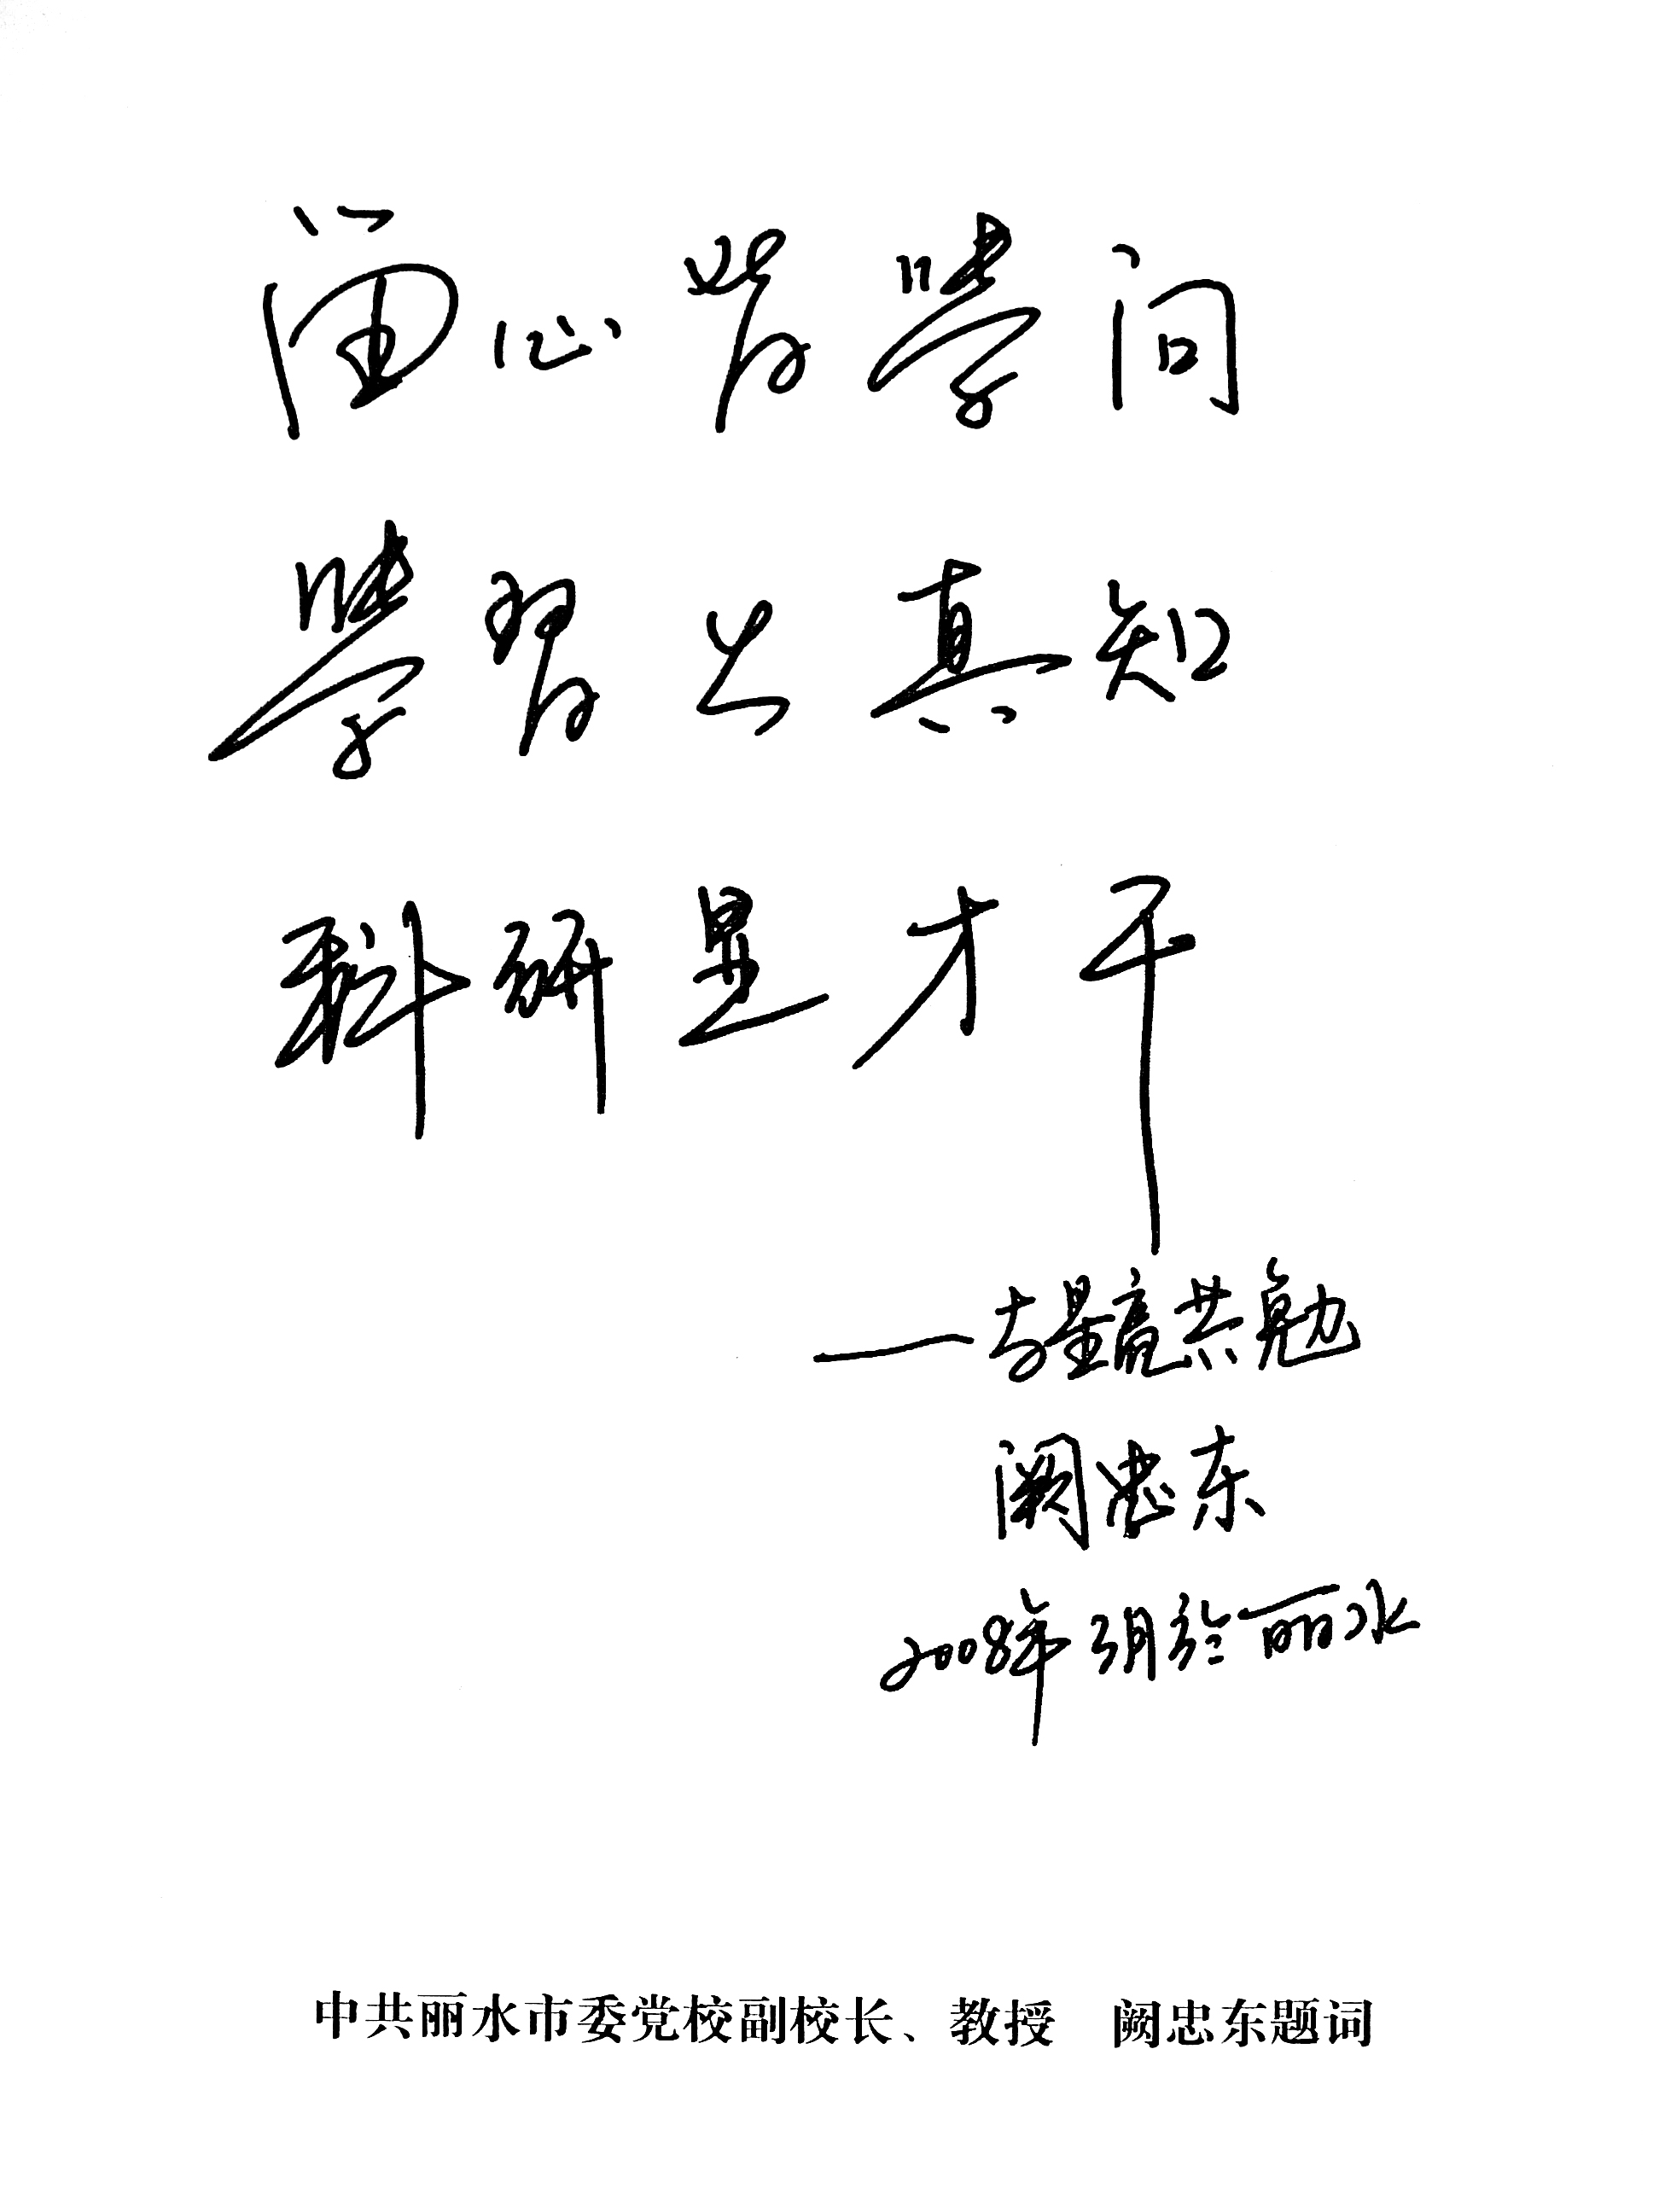 留心皆學问
學習出真知
科研显才干
——与星亮共勉
阙忠东
2008年3月於丽水
中共丽水市委党校副校长、教授 阙忠东题词